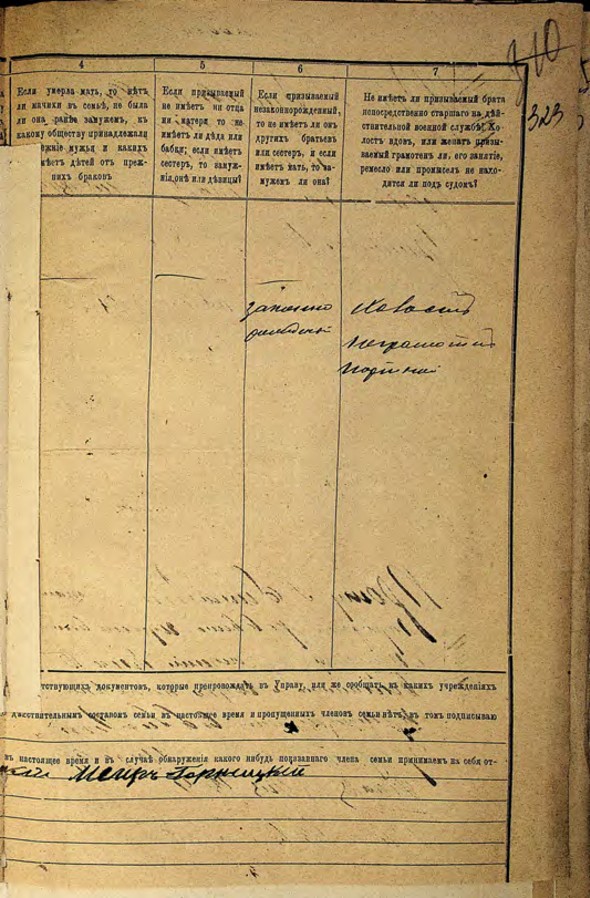 310
323
4
Если умерла мать, то нѣтъ
ли мачихи въ семьѣ, не была
ли она ранѣе замужемъ, къ
какому обществу принадлежали
ежніе мужья и какихъ
мѣетъ дѣтей отъ преж-
нихъ браковъ
5
Если призываемый
не имѣетъ ни отца
ни матери то не
имѣетъ ли дѣда или
бабки; если имѣетъ
сестеръ, то замуж-
нія, онѣ или дѣвицы?
6
Если призываемый
незаконнорожденный,
то не имѣетъ ли онъ
другихъ братьевъ
или сестеръ, и если
имѣетъ мать, то за-
мужемъ ли она?
7
Не имѣетъ ли призываемый брата
непосредственно старшаго на дѣй-
ствительной военной службѣ? Хо-
лостъ вдовъ, или женатъ призы-
ваемый грамотенъ ли, его занятіе,
ремесло или промыселъ не нахо-
дится ли подъ судомъ?
законно
Холостъ
неграмотный
портной
тствующихъ документовъ, которые препровождать въ Управу, или же сообщать въ какихъ учрежденіяхъ
дѣйствительнымъ составомъ семьи въ настоящее время и пропущенныхъ членовъ семьи нѣтъ, въ томъ подписываю
въ настоящее время и въ случаѣ обнаруженія какого нибудь показаннаго члена семьи принимаемъ на себя от-
Меиръ Горницкій